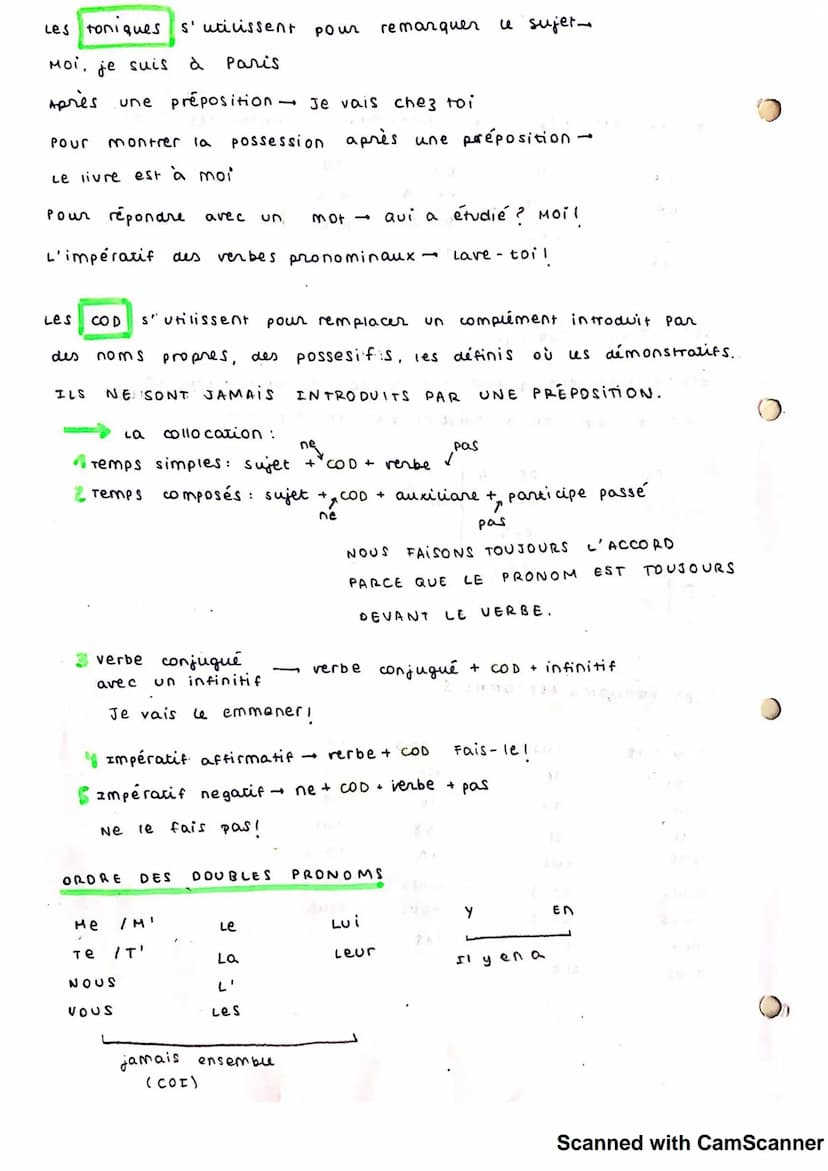 Les toniques s'utilissent pour remarquer le sujet→
Moi, je suis à Paris
Après une préposition → Je vais chez toi
Pour montrer la possession après une préposition →
Le livre est à moi
Pour répondre avec un mot → Qui a étudié? Moi!
L'impératif des verbes pronominaux → Lave-toi!
Les COD s'utilissent pour remplacer un complément introduit par
des noms propres, des possesifs, les définis où les démonstratifs.
ILS NE SONT JAMAIS INTRODUITS PAR UNE PRÉPOSITION.
→ La collocation:
ne pas
1 Temps simples: sujet + COD + verbe
2 Temps composés: sujet + COD + auxiliare + participe passé
ne pas
NOUS FAISONS TOUJOURS L'ACCORD
PARCE QUE LE PRONOM EST TOUJOURS
DEVANT LE VERBE.
3 verbe conjugué
avec un infinitif → verbe conjugué + COD + infinitif
Je vais le emmener!
4 Impératif affirmatif → verbe + COD Fais-le!
5 Impératif negatif → ne + COD + verbe + pas
Ne le fais pas!
ORDRE DES DOUBLES PRONOMS
Me /M' Le Lui Y EN
Te /T' La Leur Il y en a
NOUS L'
VOUS Les
jamais ensemble
(COI)
Scanned with CamScanner